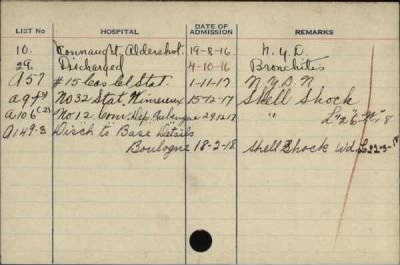 LIST NO HOSPITAL DATE OF ADMISSION REMARKS
10. Connaught, Aldershot. 19-8-16 N.Y.D.
29. Discharged 4-10-16 Bronchitis
A57 #15 Cas Cel Stat. 1-11-17 N.Y.D.N
A94 No 32 Stat, Wimereux 15-12-17 Shell Shock
A106(2) No 12 Conv. Dep. Aubengue 29.12.17 "
A149-3 Disch to Base Details
Boulogne 18-2-18 Shell Shock Wd.